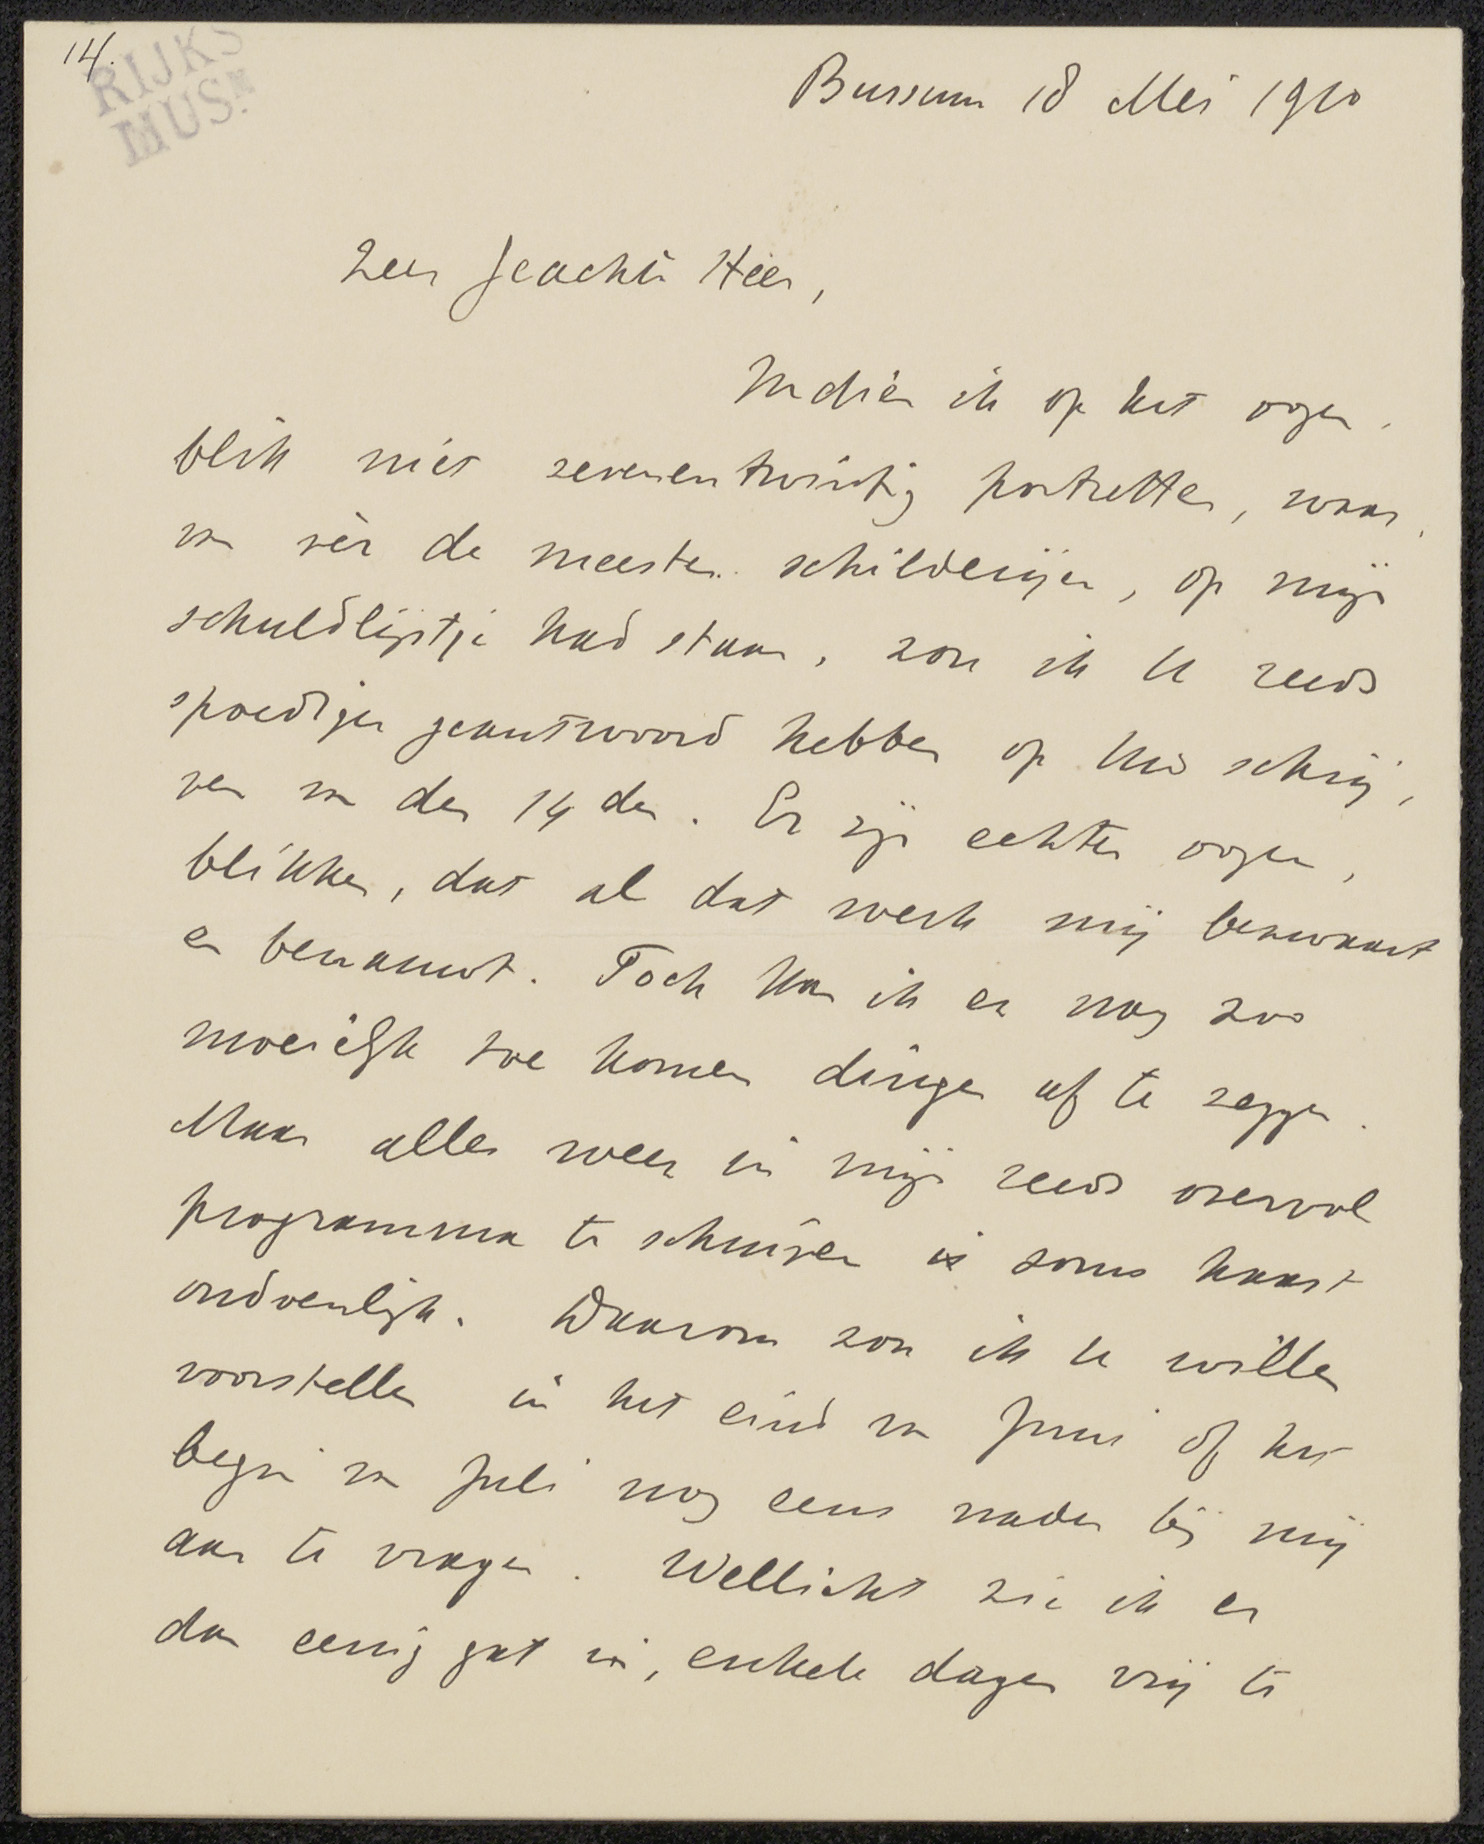 14.
RIJKS
MUS.M
Bussum 18 Mei 1910
Zeer geachte Heer,
Indien ik op het oogen-
blik niet zevenentwintig portretten, waar-
van vèr de meeste schilderijen, op mijn
schuldlijstje had staan, zou ik U reeds
spoediger geantwoord hebben op Uw schrij-
ven van den 14 den. Er zijn echter oogen-
blikken, dat al dat werk mij bezwaart
en benauwt. Toch kan ik er nog zoo
moeielijk toe komen dingen af te zeggen.
Maar alles weer in mijn reeds overvol
programma te schuiven is soms haast
ondoenlijk. Daarom zou ik U willen
voorstellen in het eind van Juni of het
begin van Juli nog eens nader bij mij
aan te vragen. Wellicht zie ik er
dan eenig gat in, enkele dagen vrij te